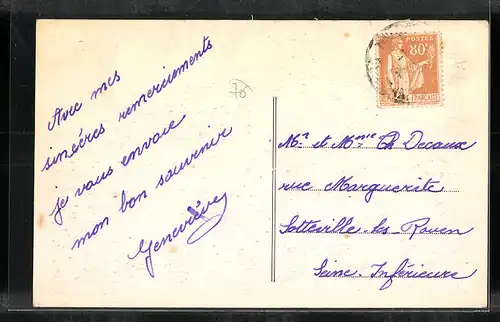 Avec mes
sincères remerciements
je vous envoie
mon bon souvenir
Geneviève
76
POSTES
80c
FRANÇAISE
Mr et Mme Ch Decaux
rue Marguerite
Sotteville-les Rouen
Seine-Inférieure